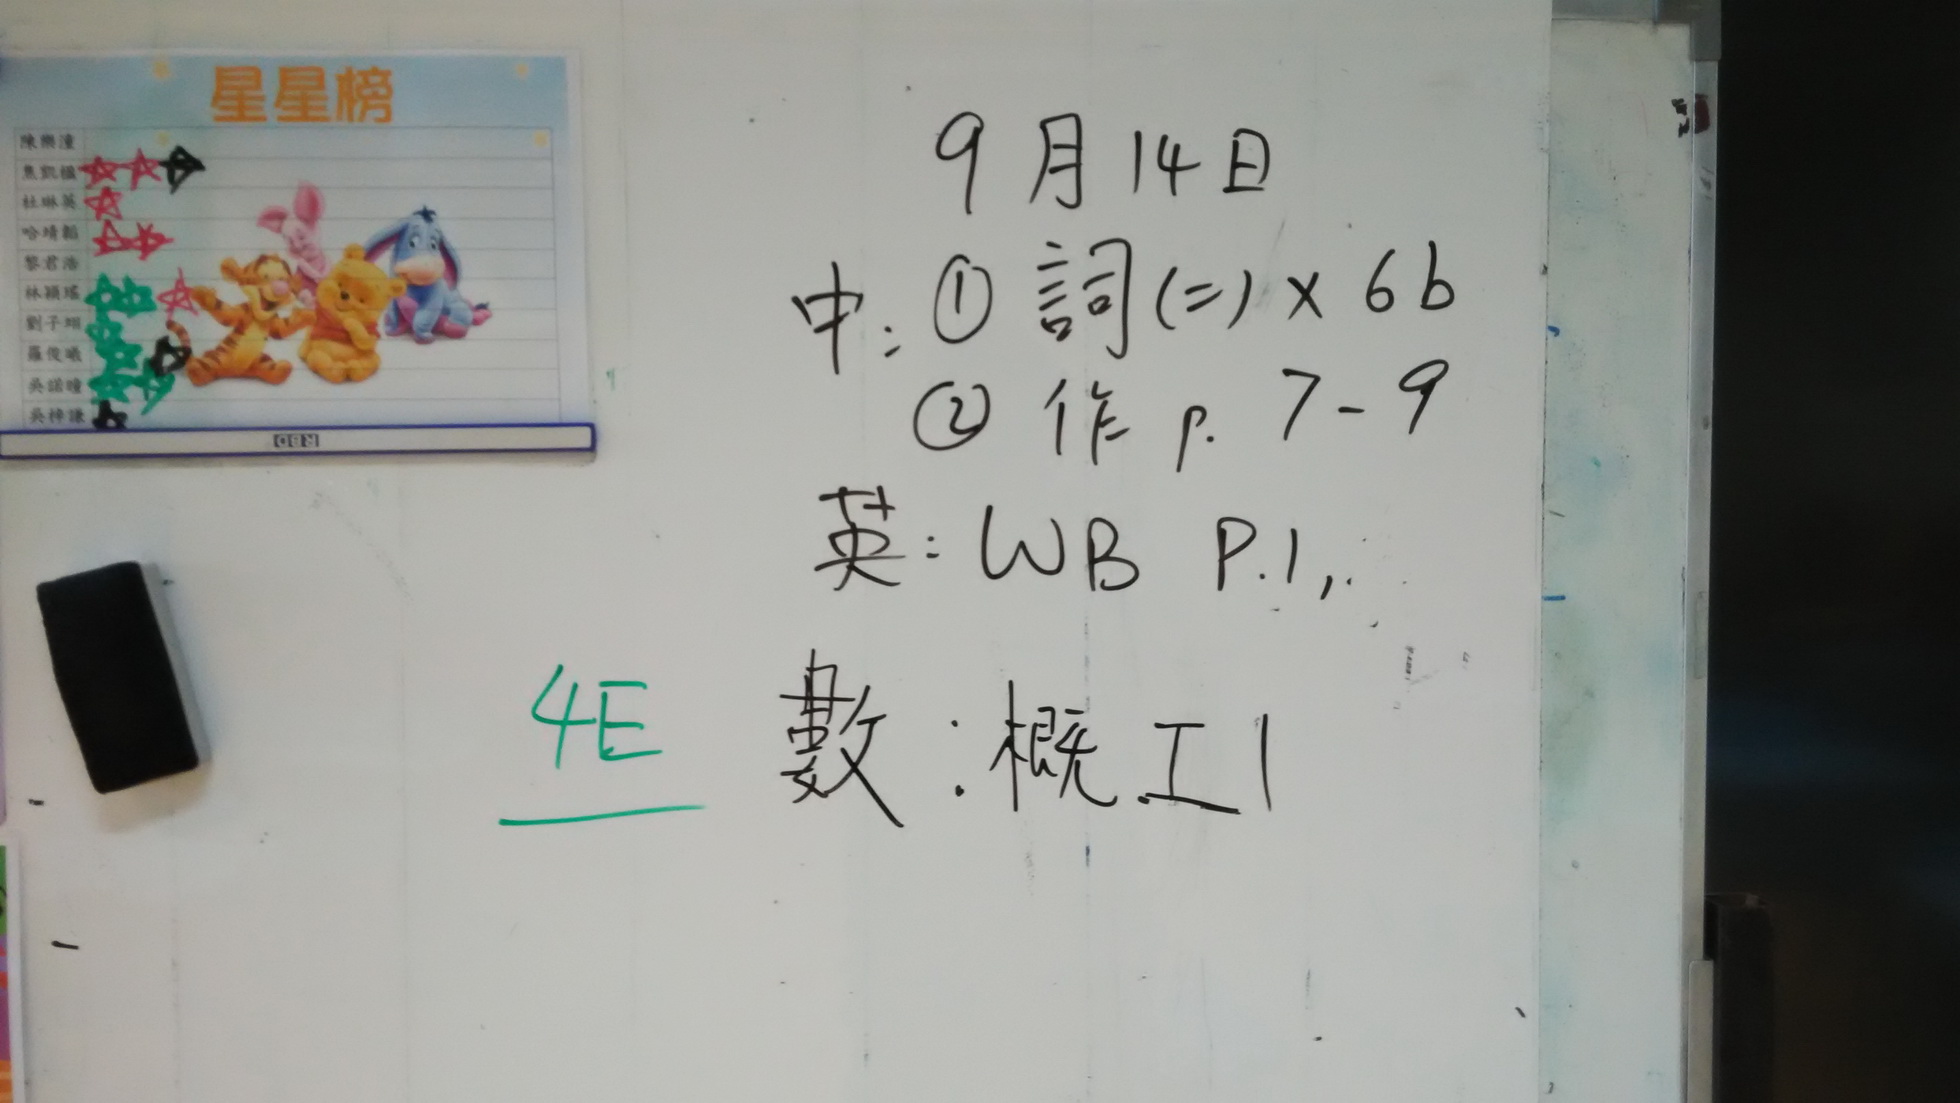 星星榜
陳樂潼
焦凱楹
杜琳英
哈靖韜
黎君浩
林穎瑤
劉子翊
羅俊曦
吳諾瞳
吳梓謙
9月14日
中:① 詞(二) x 6b
② 作 p. 7-9
英: WB P.1,
4E 數:概.工1